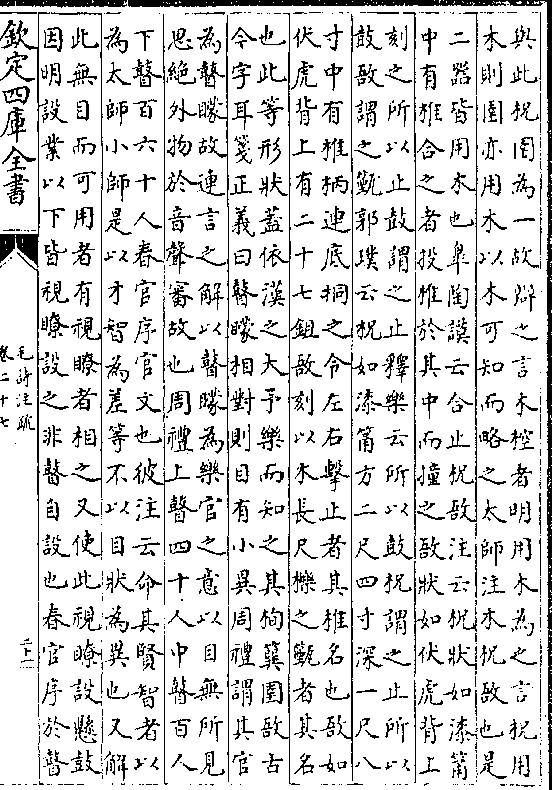 與此柷圉為一故辯之言木椌者明用木為之言柷用
木則圉亦用木以木可知而略之太師注木柷敔也是
二器皆用木也臯陶謨云合止柷敔注云柷狀如漆筩
中有椎合之者投椎於其中而撞之敔狀如伏虎背上
刻之所以止鼔謂之止釋樂云所以鼔柷謂之止所以
鼔敔謂之籈郭璞云柷如漆筩方二尺四寸深一尺八
寸中有椎柄連底挏之令左右擊止者其椎名也敔如
伏虎背上有二十七鉏敔刻以木長尺櫟之籈者其名
也此等形狀蓋依漢之大予樂而知之其栒簨圉敔古
今字耳箋正義曰瞽矇相對則目有小異周禮謂其官
為瞽矇故連言之解以瞽矇為樂官之意以目無所見
思絶外物於音聲審故也周禮上瞽四十人中瞽百人
下瞽百六十人春官序官文也彼注云命其賢智者以
為太師小師是以才智為差等不以目狀為異也又解
此無目而可用者有視瞭者相之又使此視瞭設懸鼓
因明設業以下皆視瞭設之非瞽自設也春官序於瞽
欽定四庫全書
毛詩注疏
卷二十七